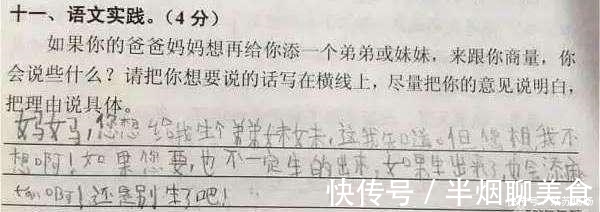 十一、语文实践。(4分)
如果你的爸爸妈妈想再给你添一个弟弟或妹妹，来跟你商量，你
会说些什么？请把你想要说的话写在横线上，尽量把你的意见说明白，
把理由说具体。
妈妈，您想给我生个弟弟妹妹，这我知道。但您想我不
想啊！如果您要，也不一定生的出来，如果生出来了，也会添麻
烦啊！还是别生了吧！
快传号／半烟聊美食